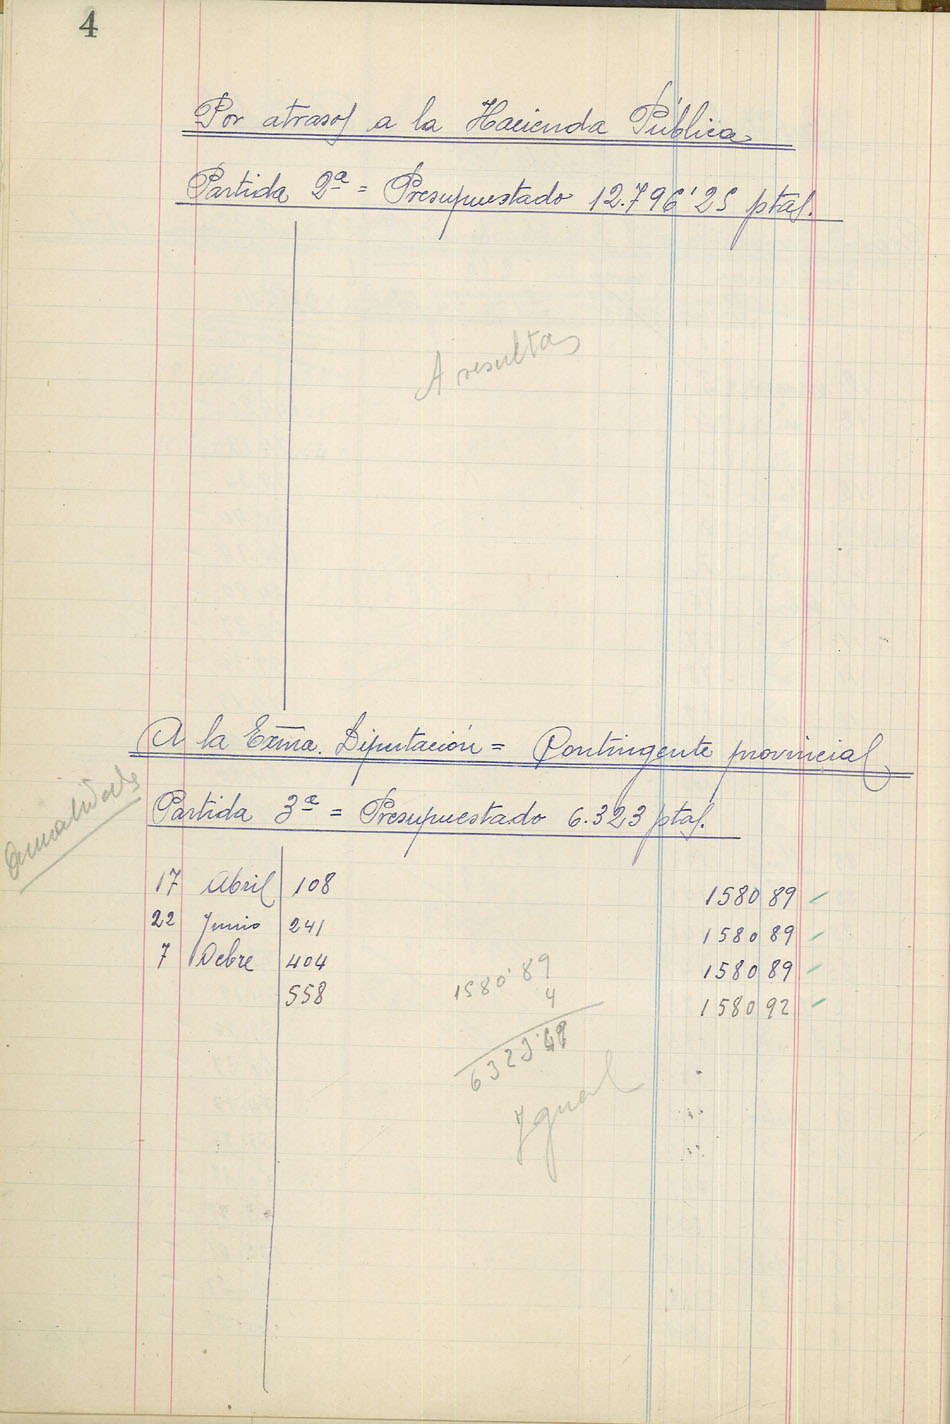 4
Por atrasos a la Hacienda Pública
Partida 2ª = Presupuestado 12.796'25 ptas.
A resultas
A la Exma. Diputación = Contingente provincial
Partida 3ª = Presupuestado 6.323 ptas.
17 Abril 108 1580 89
22 Junio 241 1580 89
7 Dcbre 404 1580 89
558 1580 92
1580'89
4
Igual